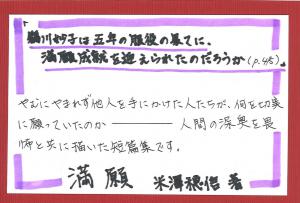 鵜川妙子は五年の服役の果てに、
満願成就を迎えられたのだろうか(p.45)。
やむにやまれず他人を手にかけた人たちが、何を切実
に願っていたのか――人間の深奥を畏
怖と共に描いた短篇集です。
満願 米澤穂信 著